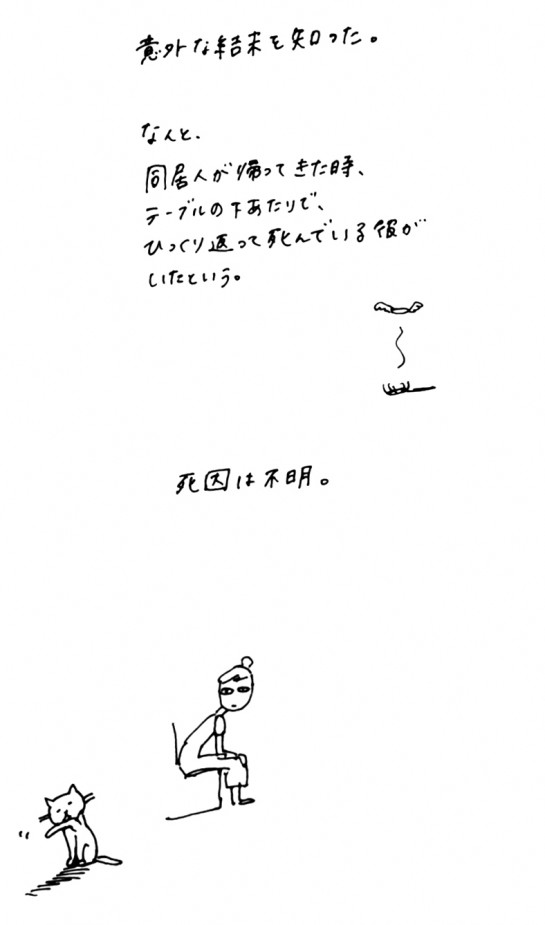 意外な結末を知った。
なんと、
同居人が帰ってきた時、
テーブルの下あたりで、
ひっくり返って死んでいる彼が
いたという。
死因は不明。